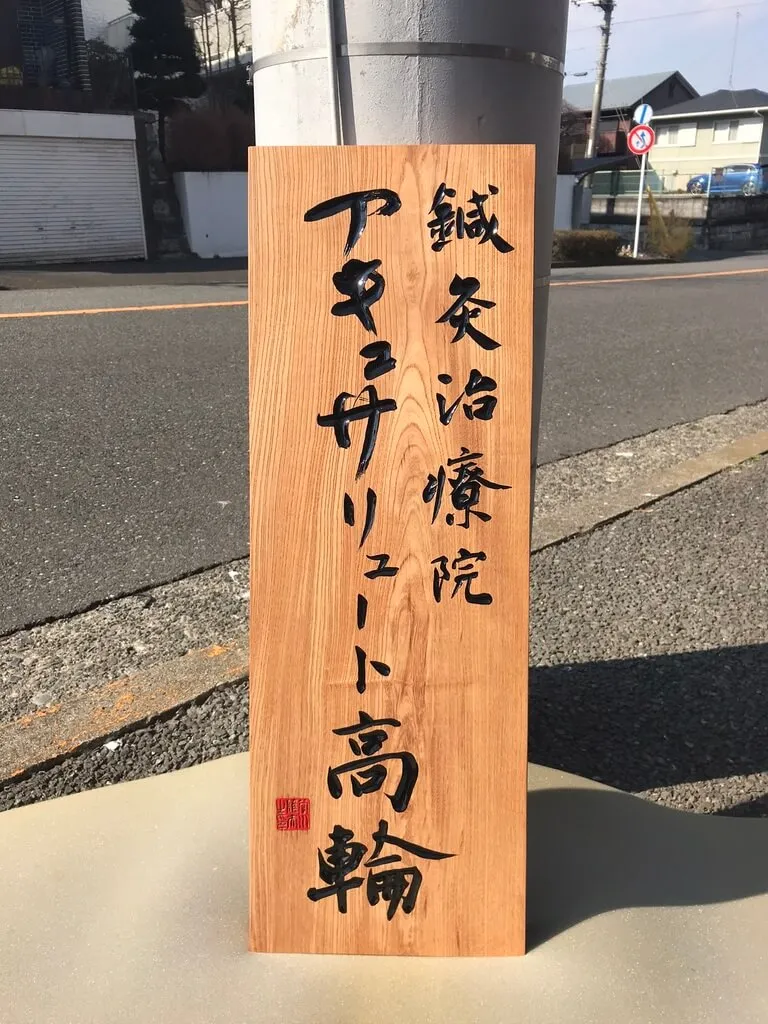 鍼灸治療院
アキュサリュート高輪